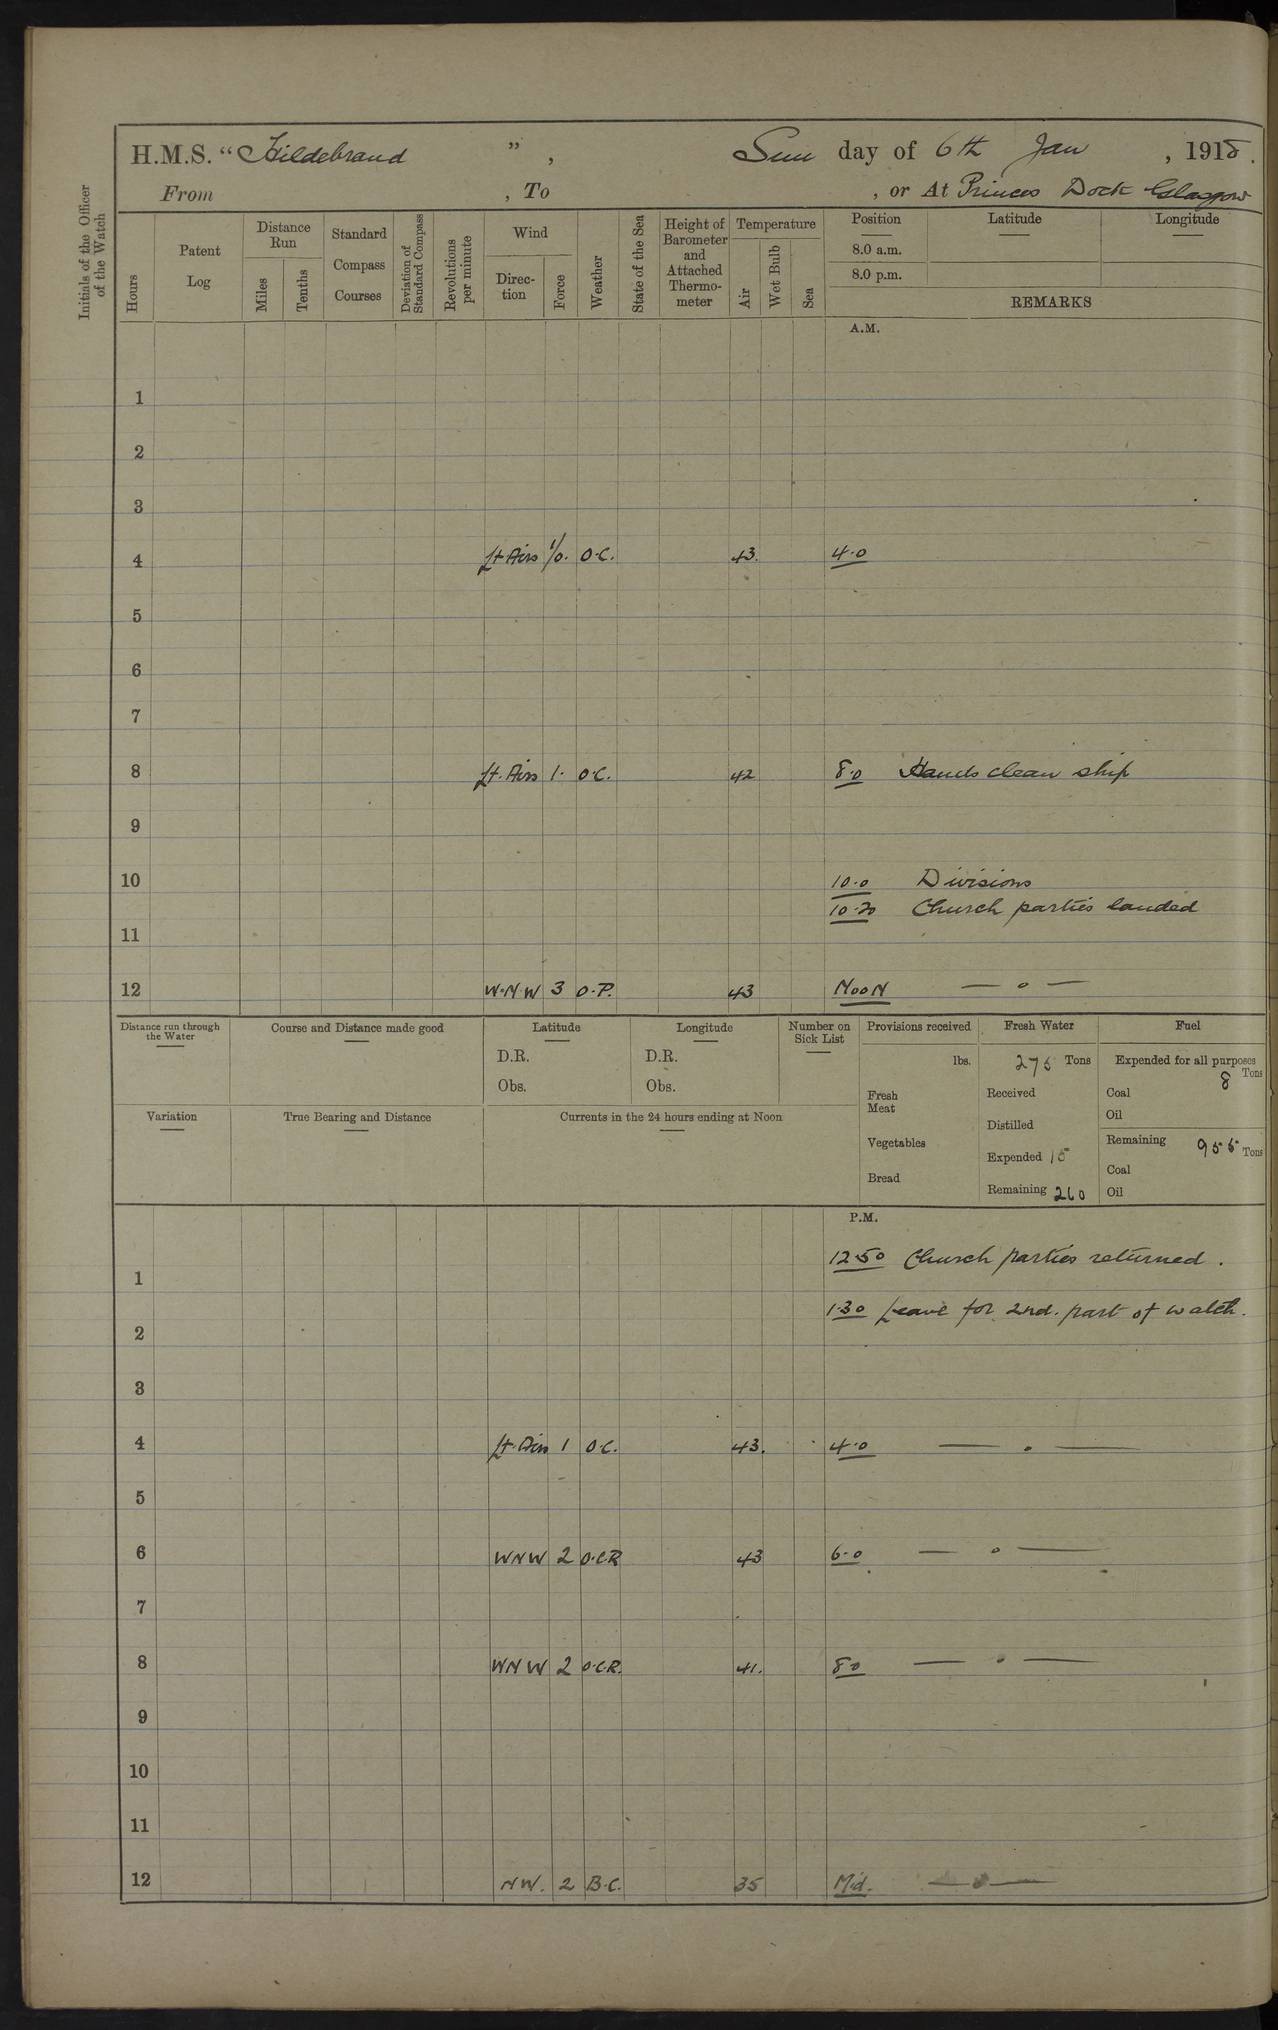 H.M.S. “Hildebrand ” , Sun day of 6th Jan , 1918.
From , To , or At Princes Dock Glasgow
Initials of the Officer of the Watch
Hours
Patent Log
Distance Run
Miles
Tenths
Standard Compass Courses
Deviation of Standard Compass
Revolutions per minute
Wind
Direc-tion
Force
Weather
State of the Sea
Height of Barometer and Attached Thermo-meter
Temperature
Air
Wet Bulb
Sea
Position Latitude Longitude
8.0 a.m.
8.0 p.m.
REMARKS
A.M.
1
2
3
4 Lt Airs 1/0. O.C. 43. 4.0
5
6
7
8 Lt. Airs 1. O.C. 42 8.0 Hands clean ship
9
10 10.0 Divisions
10.20 Church parties landed
11
12 W.N.W 3 O.P. 43 Noon — o —
Distance run through the Water
Course and Distance made good
Latitude
D.R.
Obs.
Longitude
D.R.
Obs.
Number on Sick List
Provisions received
lbs.
Fresh Meat
Vegetables
Bread
Fresh Water
275 Tons
Received
Distilled
Expended 15
Remaining 260
Fuel
Expended for all purposes
8 Tons
Coal
Oil
Remaining 955 Tons
Coal
Oil
Variation
True Bearing and Distance
Currents in the 24 hours ending at Noon
P.M.
12.50 Church parties returned.
1
1.30 Leave for 2nd. part of watch.
2
3
4 Lt. Airs 1 O.C. 43. 4.0 — . —
5
6 WNW 2 O.C.R 43 6.0 — o —
7
8 WNW 2 O.C.R. 41. 8.0 — o —
9
10
11
12 NW. 2 B.C. 35 Mid. — o —